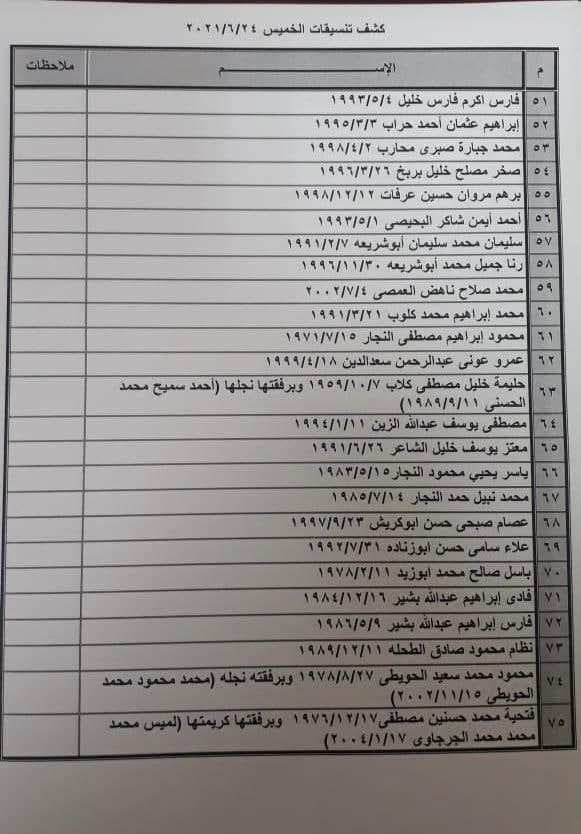 كشف تنسيقات الخميس ٢٠٢١/٦/٢٤
م الإســــــــــــــم ملاحظات
٥١ فارس اكرم فارس خليل ١٩٩٣/٥/٤
٥٢ إبراهيم عثمان أحمد حراب ١٩٩٥/٣/٣
٥٣ محمد جبارة صبرى محارب ١٩٩٨/٤/٢
٥٤ صخر مصلح خليل بريخ ١٩٩٦/٣/٢٦
٥٥ برهم مروان حسين عرفات ١٩٩٨/١٢/١٢
٥٦ أحمد أيمن شاكر البحيصى ١٩٩٣/٥/١
٥٧ سليمان محمد سليمان أبوشريعه ١٩٩١/٢/٧
٥٨ رنا جميل محمد أبوشريعه ١٩٩٦/١١/٣٠
٥٩ محمد صلاح ناهض العمصى ٢٠٠٢/٧/٤
٦٠ محمد إبراهيم محمد كلوب ١٩٩١/٣/٢١
٦١ محمود إبراهيم مصطفى النجار ١٩٧١/٧/١٥
٦٢ عمرو عونى عبدالرحمن سعدالدين ١٩٩٩/٤/١٨
٦٣ حليمة خليل مصطفى كلاب ١٩٥٩/١٠/٧ وبرفقتها نجلها (أحمد سميح محمد
الحسنى ١٩٨٩/٩/١١)
٦٤ مصطفى يوسف عبدالله الزين ١٩٩٤/١/١١
٦٥ معتز يوسف خليل الشاعر ١٩٩١/٦/٢٦
٦٦ ياسر يحيي محمود النجار ١٩٨٣/٥/١٥
٦٧ محمد نبيل حمد النجار ١٩٨٥/٧/١٤
٦٨ عصام صبحى حسن ابوكريش ١٩٩٧/٩/٢٣
٦٩ علاء سامى حسن ابوزناده ١٩٩٢/٧/٣١
٧٠ باسل صالح محمد ابوزيد ١٩٧٨/٢/١١
٧١ فادى إبراهيم عبدالله بشير ١٩٨٤/١٢/١٦
٧٢ فارس إبراهيم عبدالله بشير ١٩٨٦/٥/٩
٧٣ نظام محمود صادق الطحله ١٩٨٩/١٢/١١
٧٤ محمود محمد سعيد الحويطى ١٩٧٨/٨/٢٧ وبرفقته نجله (محمد محمود محمد
الحويطى ٢٠٠٢/١١/١٥)
٧٥ فتحية محمد حسنين مصطفى ١٩٧٦/١٢/١٧ وبرفقتها كريمتها (لميس محمد
محمد محمد الجرجاوى ٢٠٠٤/١/١٧)